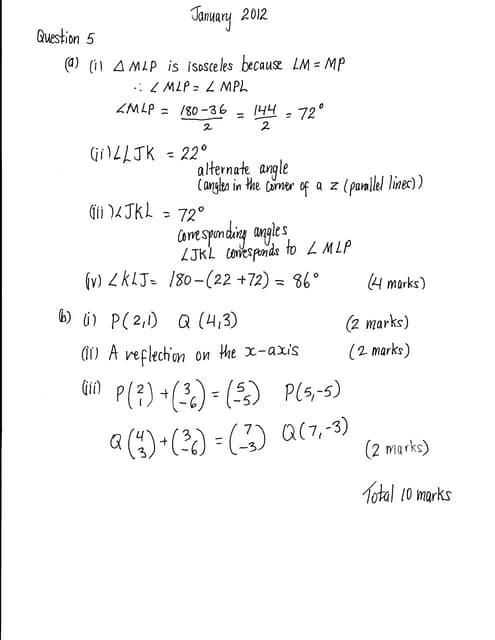 January 2012
Question 5
(a) (i) △ MLP is isosceles because LM = MP
∴ ∠ MLP = ∠ MPL
∠MLP = 180-36/2 = 144/2 = 72°
(ii) ∠LJK = 22°
alternate angle
(angles in the corner of a z (parallel lines))
(iii) ∠JKL = 72°
corresponding angles
∠JKL corresponds to ∠ MLP
(iv) ∠KLJ = 180-(22+72) = 86° (4 marks)
b) (i) P(2,1) Q (4,3) (2 marks)
(ii) A reflection on the x-axis (2 marks)
(iii) P(2 1) + (3 -6) = (5 -5) P(5,-5)
Q(4 3) + (3 -6) = (7 -3) Q(7,-3)
(2 marks)
Total 10 marks